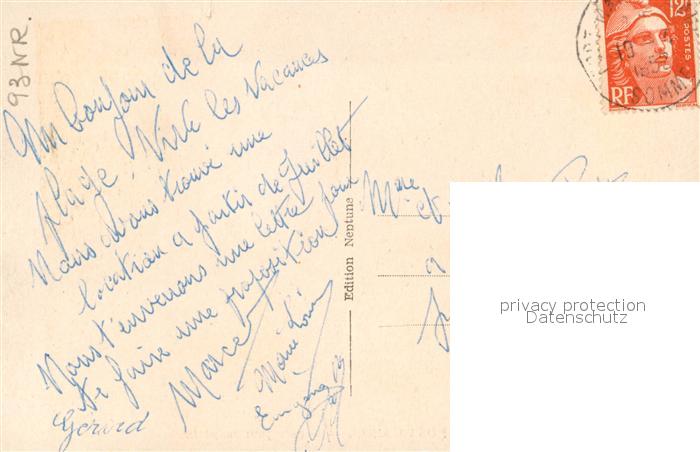 93NR.
Un bonjour de la
plage. Vive les Vacances
Nous avons trouvé une
location a partir de Juillet
Nous t'enverrons une lettre pour
te faire une proposition
Marcel
Marie Louise
Gérard
Edition Neptune
Mme
et
a
12F
POSTES
RF
10
SOMME
privacy protection
Datenschutz